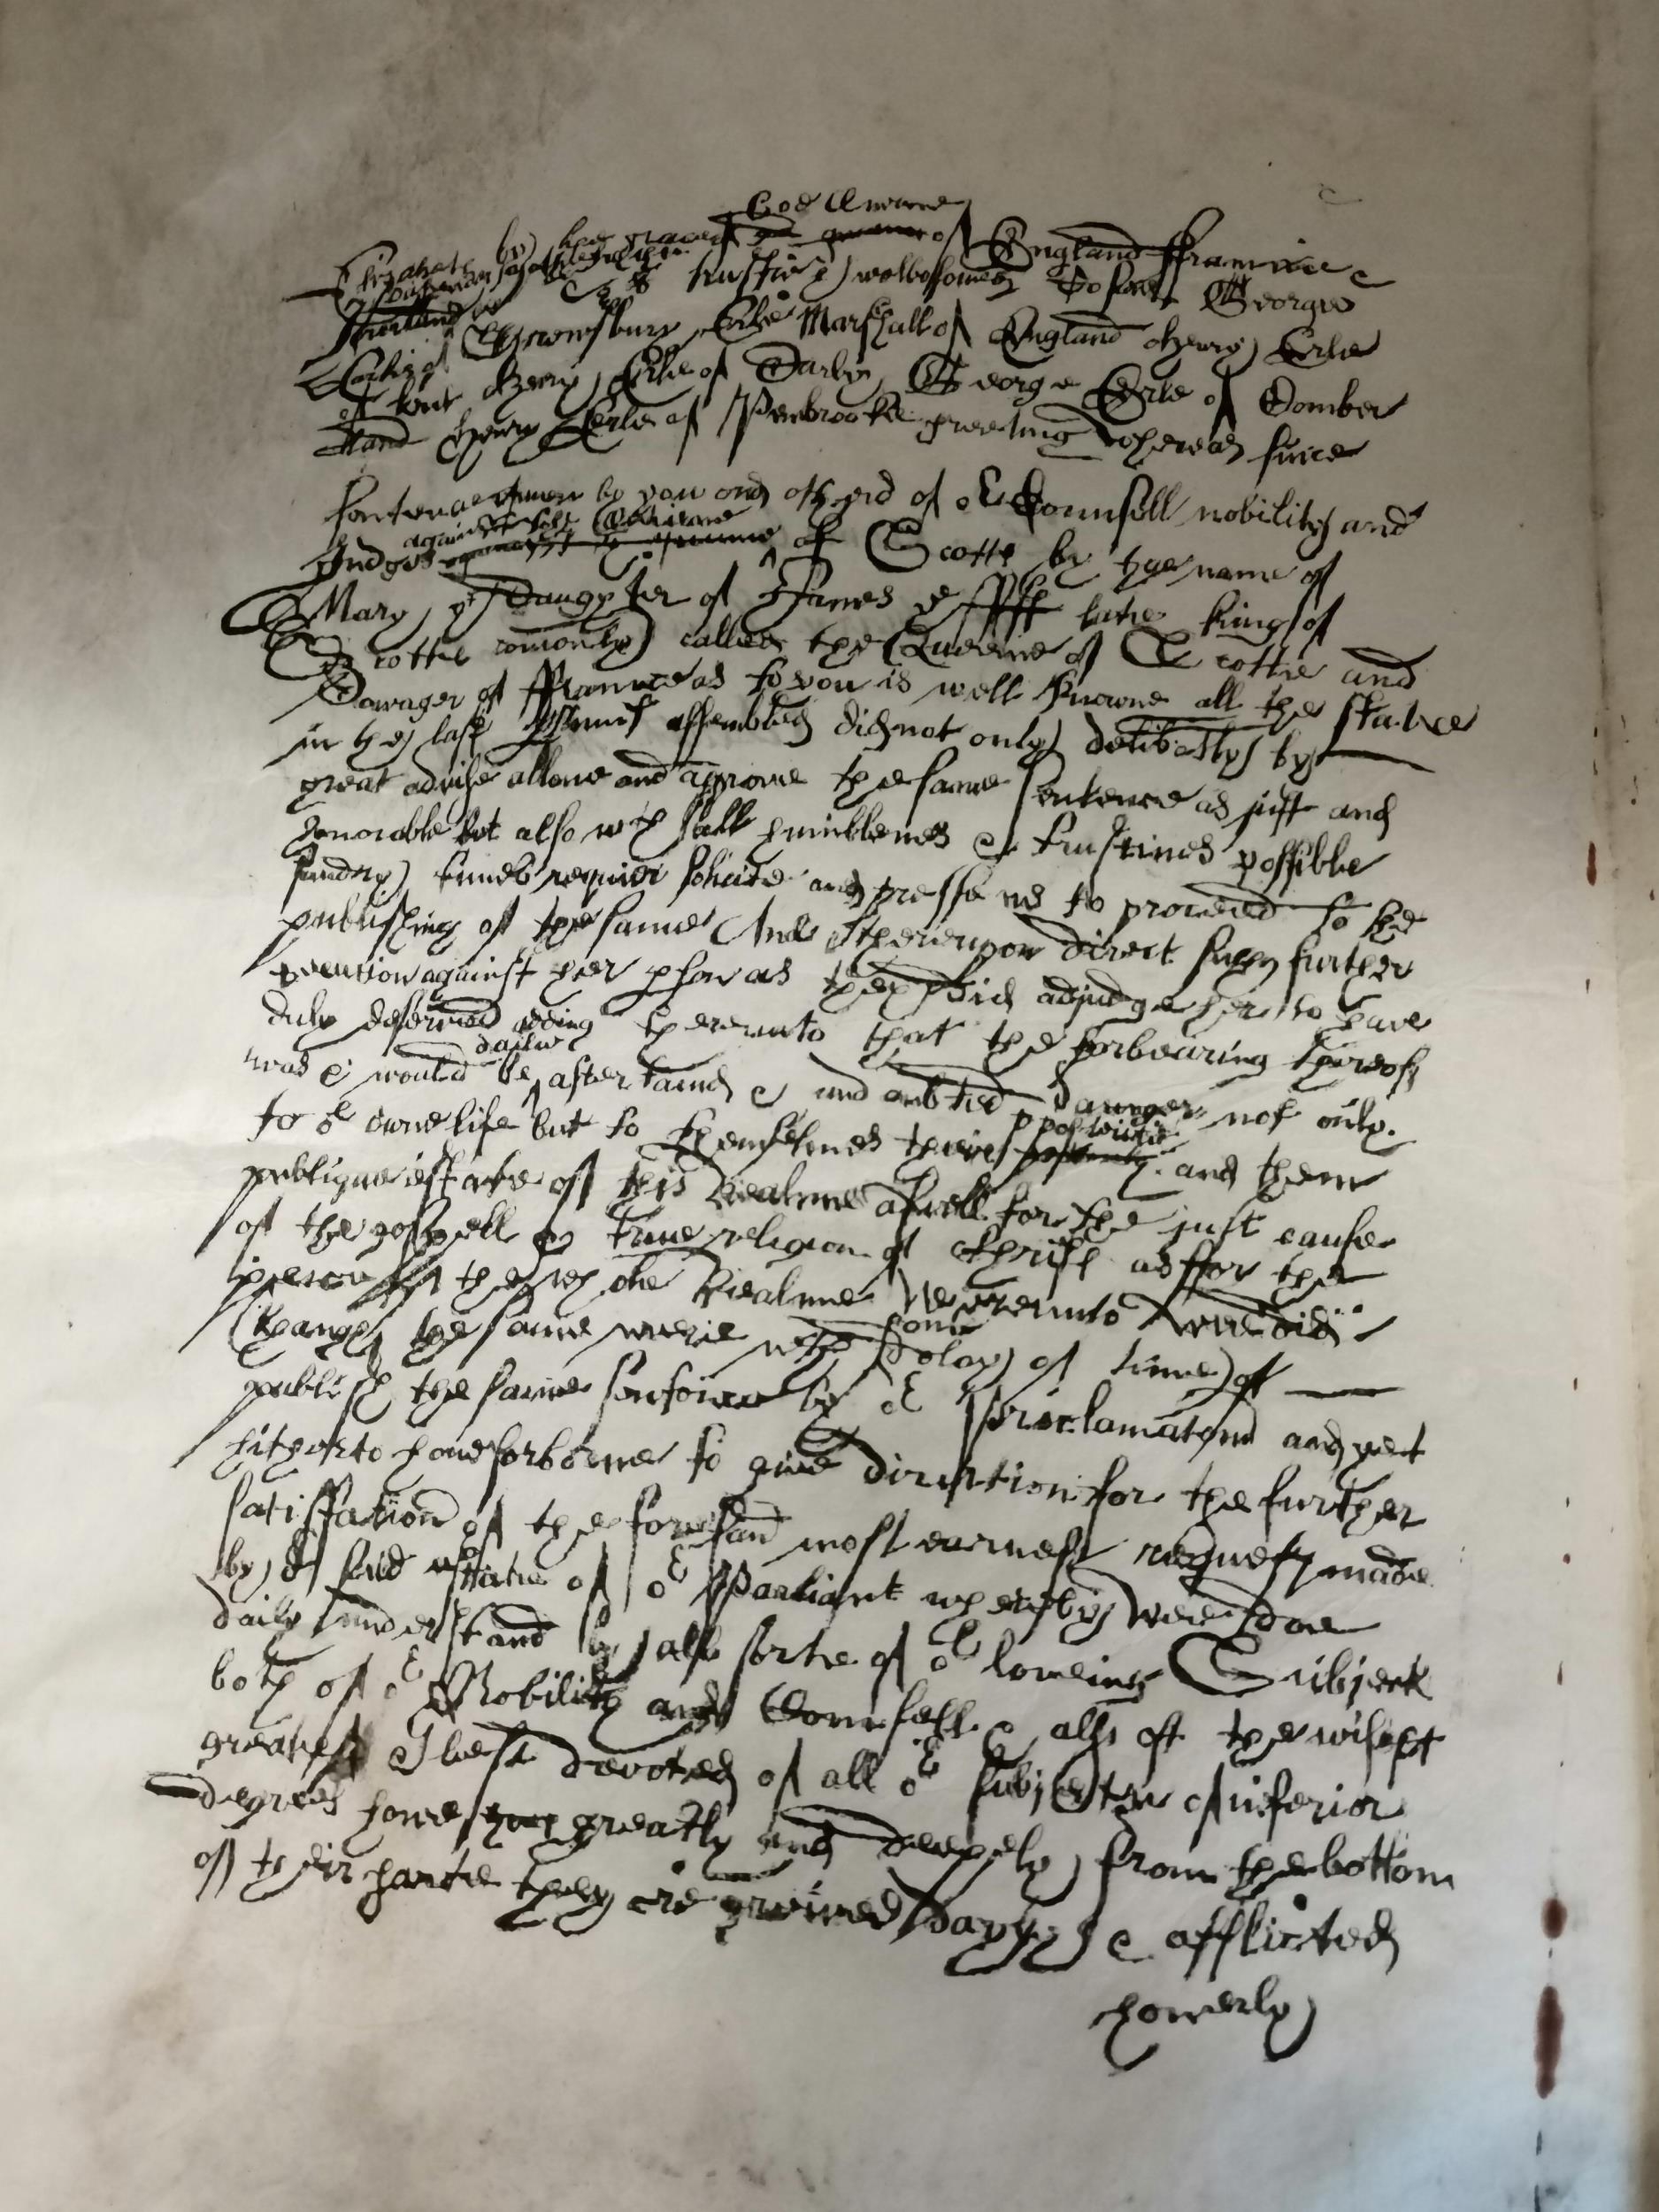 God Queene
Elizabeth by the grace of of England ffraunce &
Ireland &c To oʳ trustie & welbeloued Cosens George
Earle of Shrewsbury Erle Marshall of England Henry Erle
of kent Henry Erle of Darby, George Erle of Comber
land Henry Erle of Pembrooke greeting Whereas since
sentence giuen by you and others of oʳ Counsell nobility and
Judges against the Queene of Scotts by the name of
Mary yᵉ Daughter of James yᵉ ffift late king of
Scotts comonly called the Queene of Scotts and
Dowager of ffraunce as to you is well knowne all the states
in the last assembled did not only delibatly by
great aduise allowe and aproue the same sentence as just and
honorable but also wᵗʰ all humblenes & possible
sundry times require solicite and presse us to proceed to the
publishing of the same And thereupon direct such further
execution against her pson as they did adjudge her to haue
duly deserued adding thereunto that the forbearing thereof
daily
was & would be certaine & undoubted daunger not only
to oʳ owne life but to themselues their posteritie and the
publique estate of this Realme aswell for the just cause
of the gospell & true religion of Christ as ffor the
peace of the whole Realme Wereunto Wee did
some
the same were wᵗʰ delay of time of
publish the same sentence by oʳ Proclamatyon and yet
hitherto haue forborne to giue direction for the further
satisfaction of the foresaid most earnest request made
by yᵉ said states of oʳ Parliamt whereby wee doe
daily understand by all sorte of oʳ loueing Subjects
both of oʳ Nobility and Counsell & also of the wisest
greatest & best deuoted of all oʳ subjects of inferior
degrees howe greatly and deepely from the bottom
of their harte they are greiued & afflicted
howerly